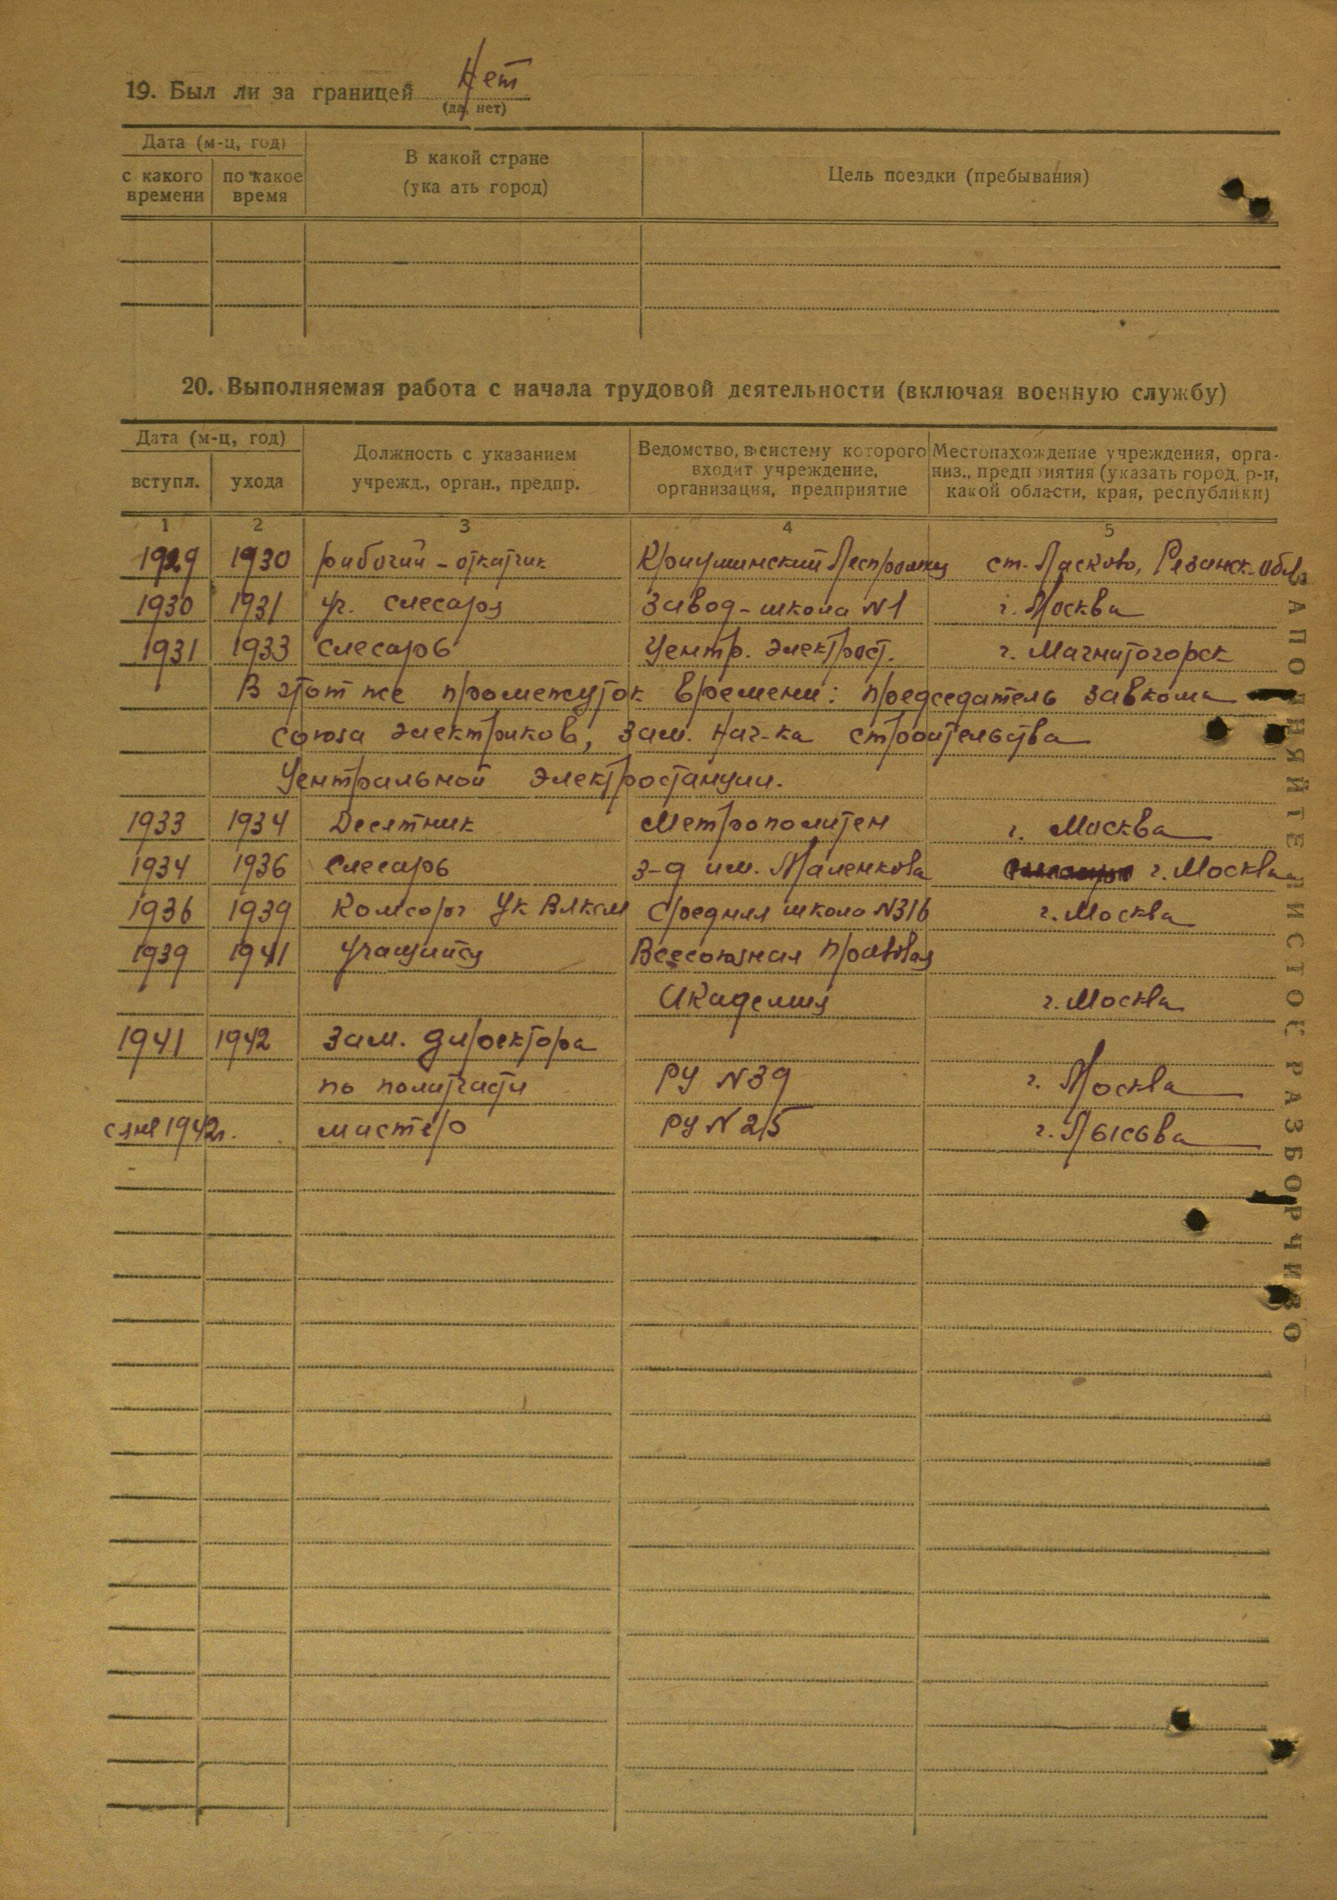 19. Был ли за границей Нет
(да, нет)
Дата (м-ц, год)
с какого времени
по какое время
В какой стране
(ука ать город)
Цель поездки (пребывания)
20. Выполняемая работа с начала трудовой деятельности (включая военную службу)
Дата (м-ц, год)
вступл.
ухода
Должность с указанием
учрежд., орган., предпр.
Ведомство, в систему которого
входит учреждение,
организация, предприятие
Местонахождение учреждения, орга-
низ., предприятия (указать город, р-н,
какой области, края, республики)
1 2 3 4 5
1929 1930 рабочий - откатчик Криушинский Леспромхоз ст. Ласково, Рязанск. обл.
1930 1931 уч. слесаря Завод-школа N1 г. Москва
1931 1933 слесарь Центр. электрост. г. Магнитогорск
В этот же промежуток времени: председатель завкома
союза электриков, зам. нач-ка строительства
Центральной электростанции.
1933 1934 Десятник Метрополитен г. Москва
1934 1936 слесарь з-д им. Маленкова г. Москва
1936 1939 Комсорг ЦК ВЛКСМ Средняя школа N316 г. Москва
1939 1941 учащийся Всесоюзная Правовая
Академия г. Москва
1941 1942 зам. директора
по политчасти РУ N39 г. Москва
1942г. мастер РУ N 25 г. Лысьва
ЗАПОЛНЯЙТЕ ЛИСТОК РАЗБОРЧИВО